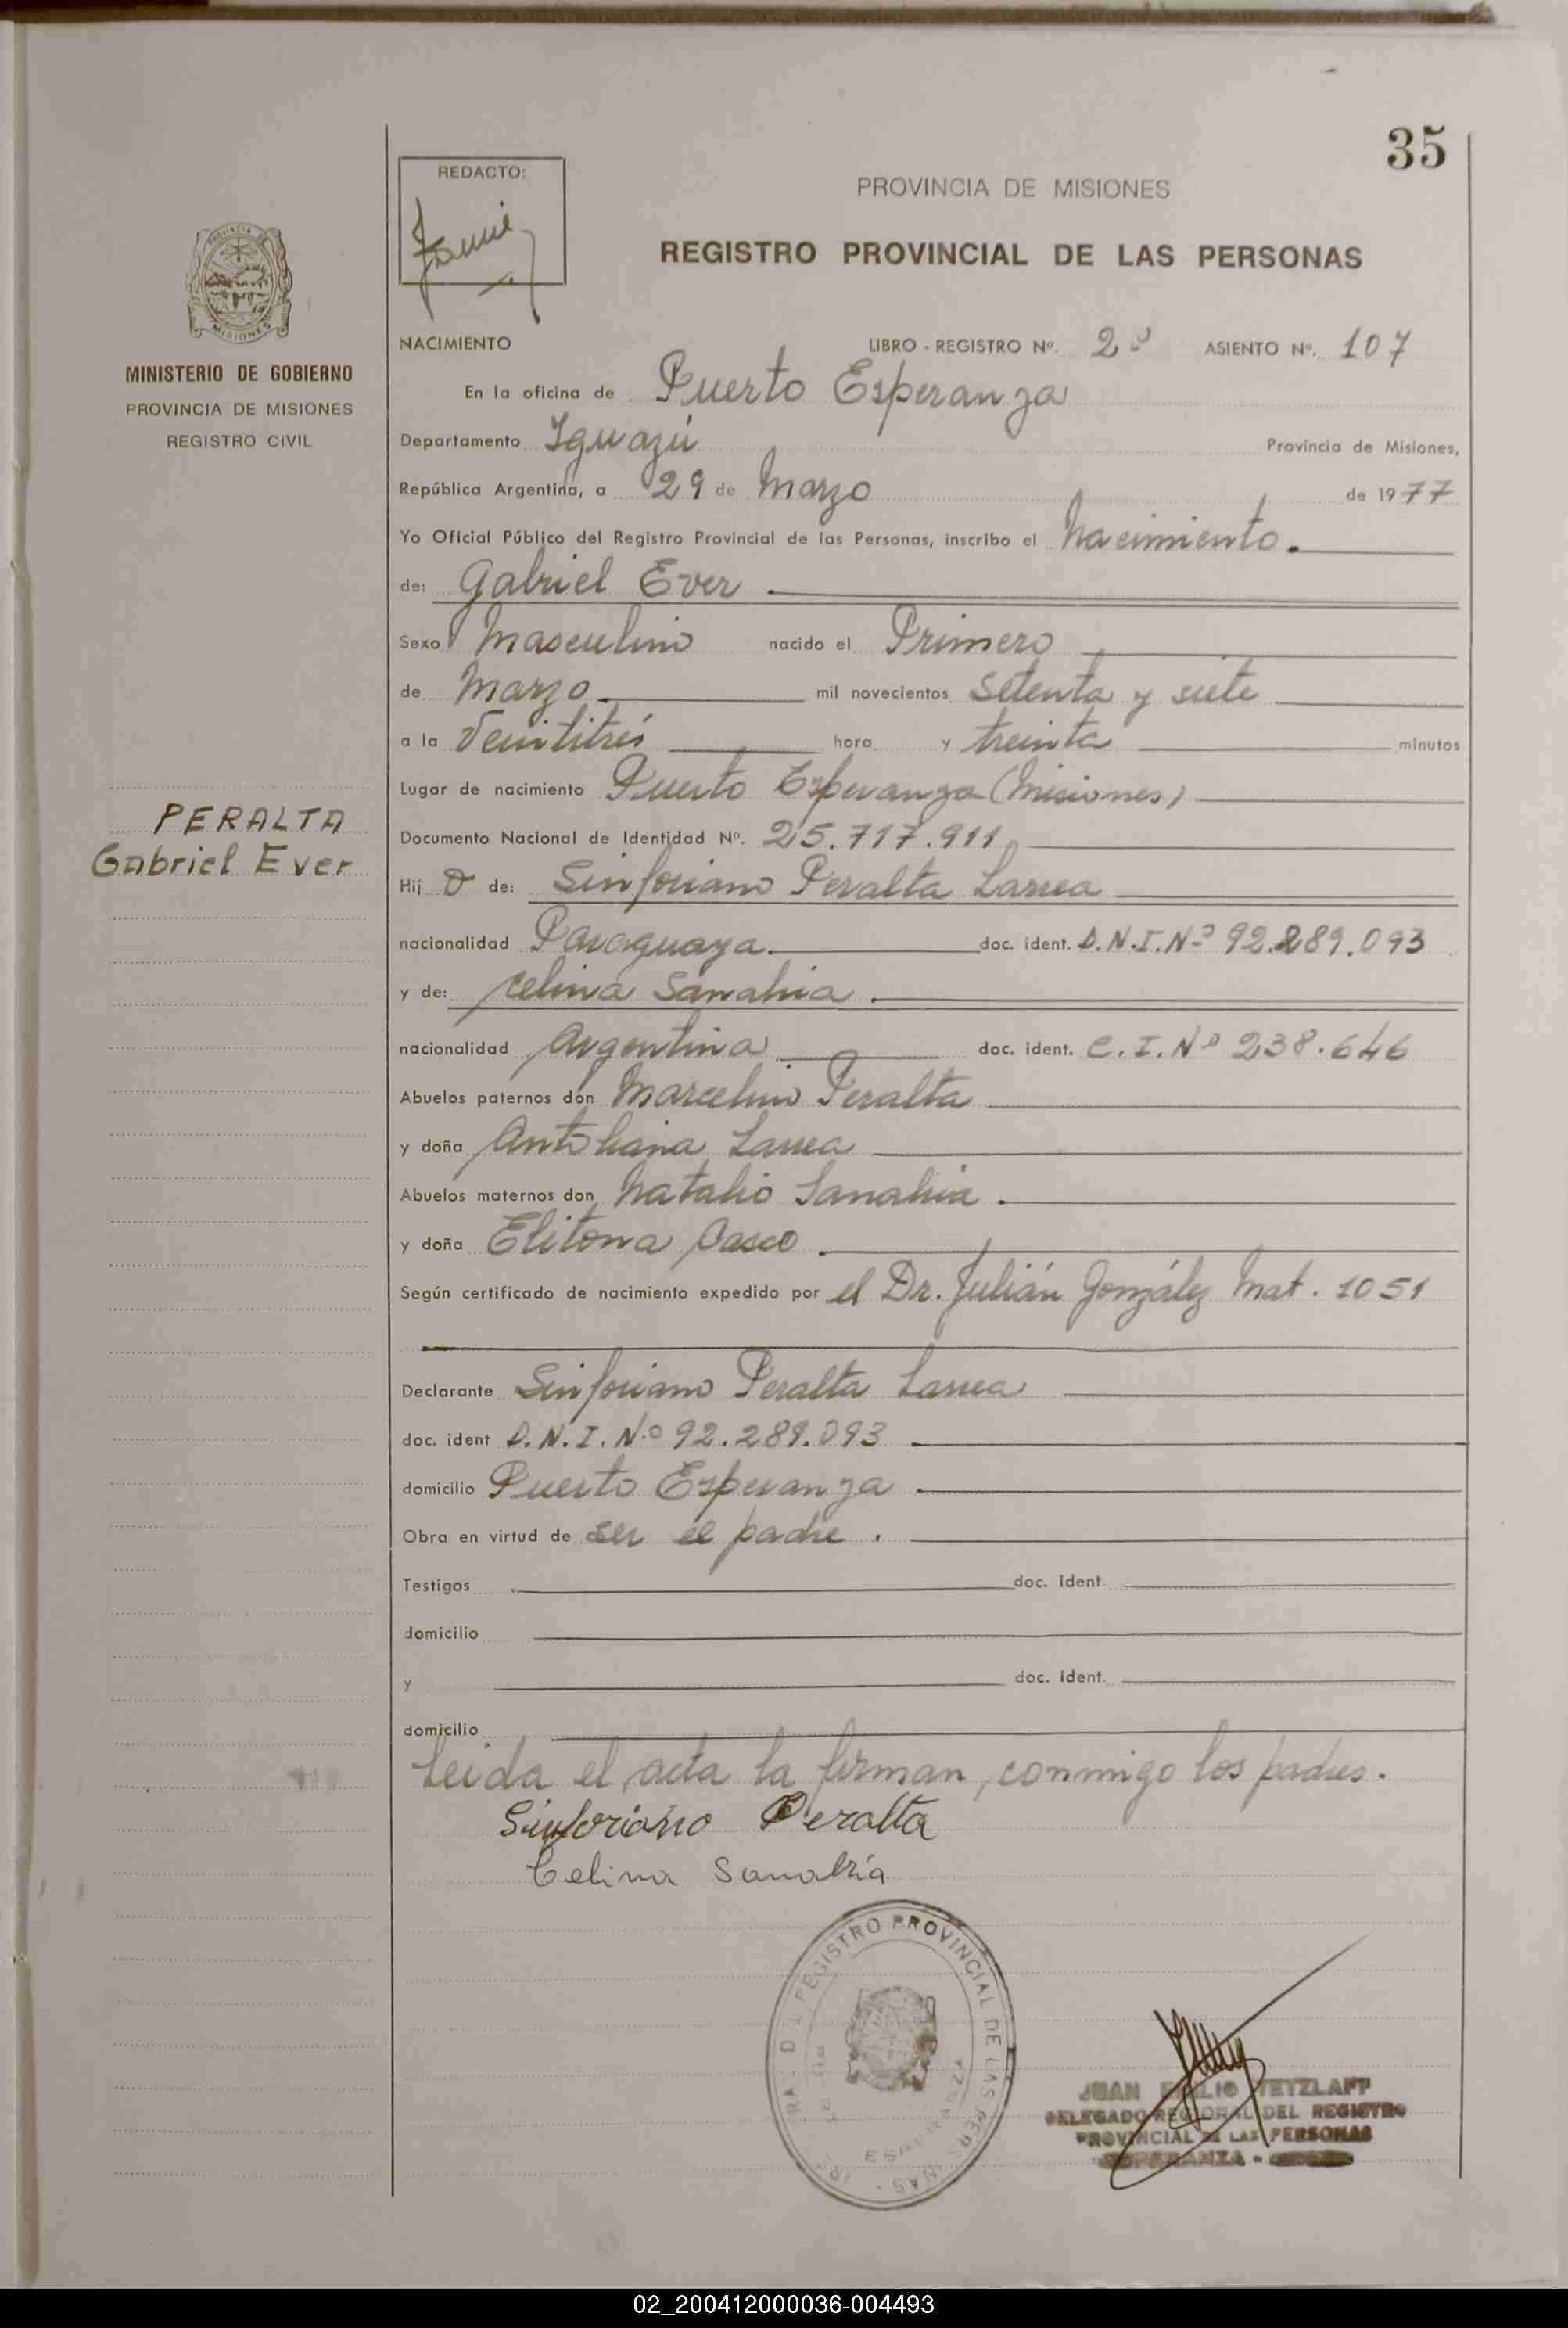 35
REDACTO:
PROVINCIA DE MISIONES
REGISTRO PROVINCIAL DE LAS PERSONAS
PROVINCIA DE
MISIONES
MINISTERIO DE GOBIERNO
PROVINCIA DE MISIONES
REGISTRO CIVIL
NACIMIENTO LIBRO - REGISTRO Nº. 2º ASIENTO Nº. 107
En la oficina de Puerto Esperanza
Departamento Iguazú Provincia de Misiones,
República Argentina, a 29 de Marzo de 1977
Yo Oficial Público del Registro Provincial de las Personas, inscribo el Nacimiento.
de: Gabriel Ever
Sexo Masculino nacido el Primero
de Marzo mil novecientos setenta y siete
a la Veintitrés hora y treinta minutos
Lugar de nacimiento Puerto Esperanza (Misiones)
PERALTA
Gabriel Ever
Documento Nacional de Identidad Nº. 25.717.911
Hij o de: Sinforiano Peralta Larrea
nacionalidad Paraguaya. doc. ident. D.N.I.Nº 92.289.093
y de: Celina Sanabria.
nacionalidad Argentina doc. ident. C.I.Nº 238.646
Abuelos paternos don Marcelino Peralta
y doña Larrea
Abuelos maternos don Natalio Sanabria.
y doña Elitona Casco.
Según certificado de nacimiento expedido por el Dr. Julián González Mat. 1051
Declarante Sinforiano Peralta Larrea
doc. ident D.N.I.Nº 92.289.093
domicilio Puerto Esperanza.
Obra en virtud de ser el padre.
Testigos doc. ident.
domicilio
y doc. ident.
domicilio
Leida el acta la firman, conmigo los padres.
Sinforiano Peralta
Celina Sanabria
REGISTRO PROVINCIAL DE LAS PERSONAS
ESPERANZA
JUAN EMILIO TETZLAFF
DELEGADO REGIONAL DEL REGISTRO
PROVINCIAL DE LAS PERSONAS
ESPERANZA -
02_200412000036-004493